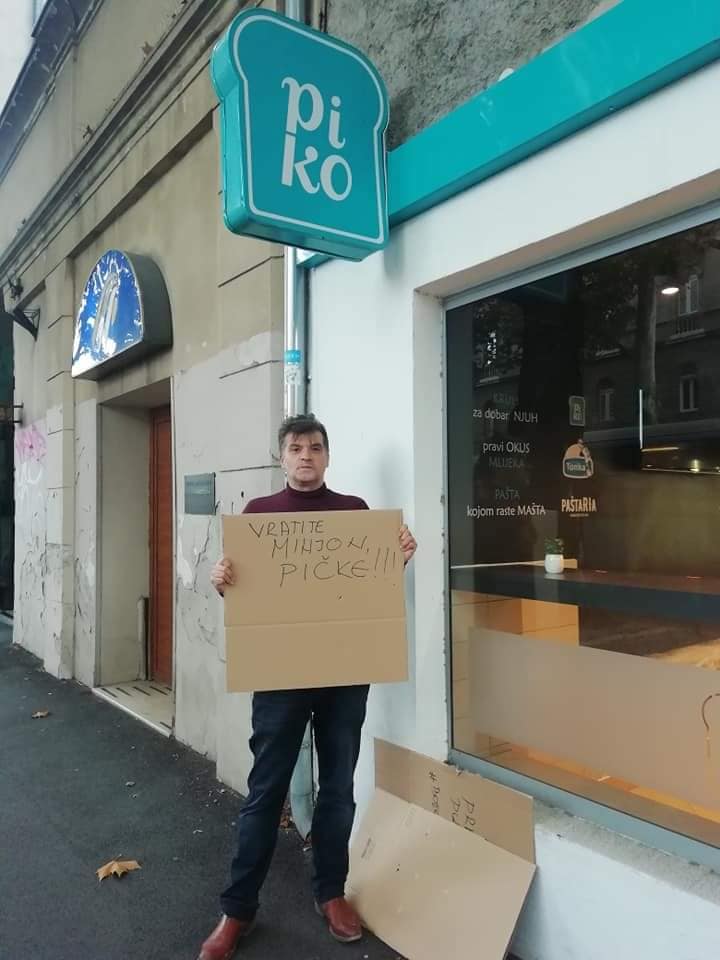 pi
ko
VRATITE
MINJON,
PIČKE!!!
KRUH
za dobar NJUH
pravi OKUS
MLIJEKA
PAŠTA
kojom raste MAŠTA
pi
ko
Tonka
PAŠTARIA